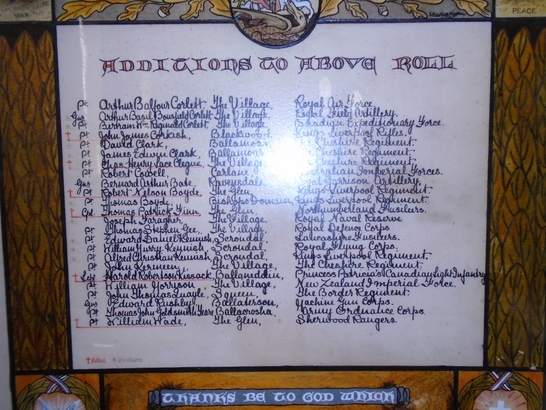 WAR
PEACE
ADDITIONS TO ABOVE ROLL
Pt Arthur Balfour Corlett The Village, Royal Air Force
Gnr Arthur Basil Bousfield Corlett The Village, Royal Field Artillery.
Pt Bertram Wm Reginald Corlett The Village Canadian Expeditionary Force.
† Pt John James Corkish, Blackwood, Kings Liverpool Rifles.
Pt David Clark, Cheshire Regiment.
Pt James Edwyn Clark, Cheshire Regiment.
† Pt Chas. Henry Lace Clague, The Village, Cheshire Regiment,
Pt Robert Cowell, Imperial Forces.
Gnr Bernard Arthur Bate, Garrison Artillery.
† Pt Robert Nelson Boyde, The Glen, Kings Liverpool Regiment
Pt Thomas Boyde, Kings Liverpool Regiment.
† Cpl Thomas Patrick Finn, The Glen, Northumberland Fusiliers.
Joseph Faragher, The Village, Royal Naval Reserve
Pt Thomas Stephen Gee, The Village Royal Defence Corps
Pt Edward Daniel Kennish, Scrondal, Lancashire Fusiliers.
Pt William Harry Kennish, Scrondal, Royal Flying Corps.
Pt Alfred Christian Kennish Scrondal, Kings Liverpool Regiment.
Pt John Kermeen, The Village, The Cheshire Regiment.
† Harold Robertson Cussack, Princess Patricia's Canadian Light Infantry
Pt William Morrison, The Village, New Zealand Imperial Force.
Pt John Thomas Quayle, The Border Regiment.
Gnr Edward Rushby, Ballaterson, Machine Gun Corps.
Pt Thomas John Goldsmith Ballacrosha, Army Ordnance Corps.
† Pt William Wade, The Glen, Sherwood Rangers.
† Killed
THANKS BE TO GOD WHICH